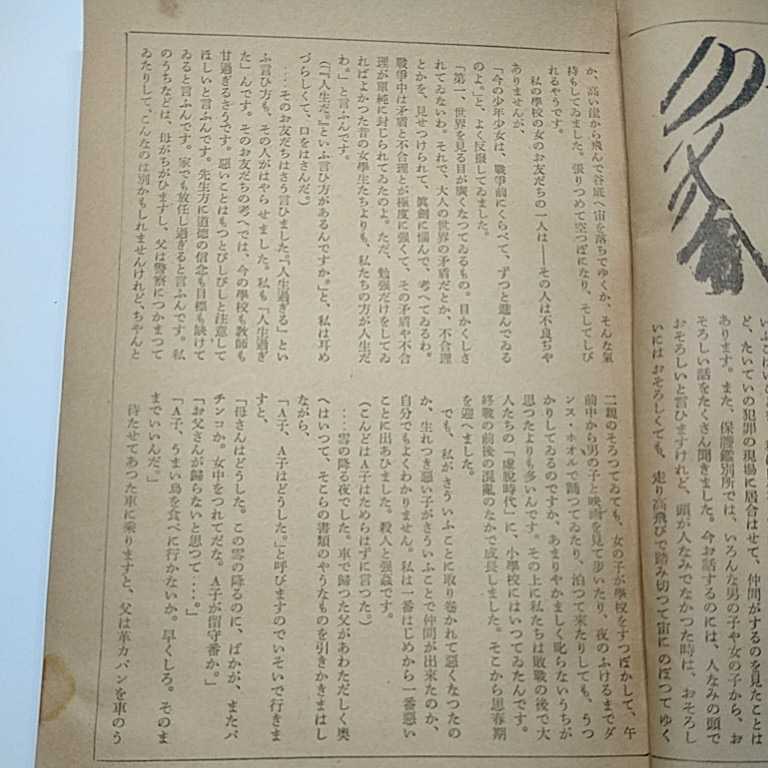 いにはおそろしくても、走り高飛びで踏み切つて宙にのぼつてゆく
おそろしいと言ひますけれど、頭が人なみでなかつた時は、おそろし
そろしい話をたくさん聞きました。今お話するのには、人なみの頭で
あります。また、保護鑑別所では、いろんな男の子や女の子から、お
ど、たいていの犯罪の現場に居合はせて、仲間がするのを見たことは
か、高い崖から飛んで谷底へ宙を落ちてゆくか、そんな氣
持もしてゐました。張りつめて空つぽになり、そしてしび
れるやうです。
私の學校の女のお友だちの一人は――その人は不良ぢや
ありませんが、
「今の少年少女は、戰爭前にくらべて、ずつと進んでゐる
のよ。」と、よく反撥してゐました。
「第一、世界を見る目が廣くなつてゐるもの。目かくしさ
れてゐないわ。それで、大人の世界の矛盾だとか、不合理
とかを、見せつけられて、眞劍に惱んで、考へてゐるわ。
戰爭中は矛盾と不合理とが極度に強くて、その矛盾や不合
理が單純に封じられてゐたのよ。ただ、勉強だけをしてゐ
ればよかつた昔の女學生たちよりも、私たちの方が人生だ
わ。」と言ふんです。
(『人生だ。』といふ言ひ方があるんですか。」と、私は耳め
づらしくて、口をはさんだ。)
‥‥そのお友だちはさう言ひました。『人生過ぎる』とい
ふ言ひ方も、その人がはやらせました。私も『人生過ぎ
た』んです。そのお友だちの考へでは、今の學校も教師も
甘過ぎるさうです。惡いことはもつとびしびしと注意して
ほしいと言ふんです。先生方に道德の信念も目標も缺けて
ゐると言ふんです。家でも放任し過ぎると言ふんです。私
のうちなどは、母がちがひますし、父は警察につかまつて
ゐたりして、こんなのは別かもしれませんけれど、ちやんと
二親のそろつてゐても、女の子が學校をすつぽかして、午
前中から男の子と映画を見て步いたり、夜のふけるまでダ
ンス・ホオルで踊つてゐたり、泊つて來たりしても、うつ
かりしてゐるのですか、あまりやかましく叱らないうちが
思つたよりも多いんです。その上に私たちは敗戰の後で大
人たちの「虛脫時代」に、小學校にはいつてゐたんです。
終戰の前後の混亂のなかで成長しました。そこから思春期
を迎へました。
でも、私がさういふことに取り卷かれて惡くなつたの
か、生れつき惡い子がさういふことで仲間が出來たのか、
自分でもよくわかりません。私は一番はじめから一番惡い
ことに出あひました。殺人と强姦です。
(こんどはA子はためらはずに言つた。)
‥‥雪の降る夜でした。車で歸つた父があわただしく奧
へはいつて、そこらの書類のやうなものを引きかきまはし
ながら、
「A子、A子はどうした。」と呼びますのでいそいで行きま
すと、
「母さんはどうした。この雪の降るのに、ばかが、またパ
チンコか。女中をつれてだな。A子が留守番か。」
「お父さんが歸らないと思つて‥‥。」
「A子、うまい鳥を食べに行かないか。早くしろ。そのま
までいいんだ。」
待たせてあつた車に乘りますと、父は革カバンを車のう